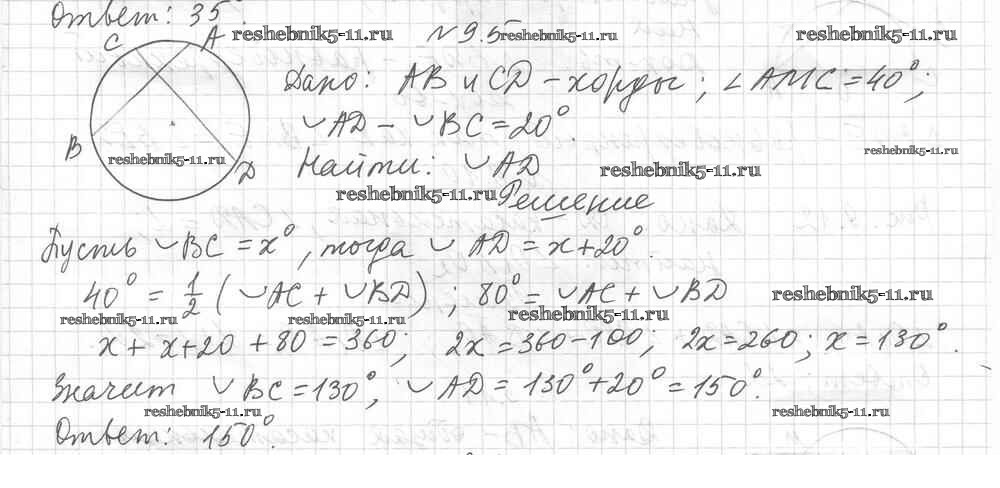 Ответ: 35°.
C A reshebnik5-11.ru N 9.5 reshebnik5-11.ru reshebnik5-11.ru
Дано: AB и CD - хорды; ∠AMC = 40°;
◡AD - ◡BC = 20°.
B reshebnik5-11.ru D Найти: ◡AD reshebnik5-11.ru reshebnik5-11.ru
reshebnik5-11.ru Решение
Пусть ◡BC = x°, тогда ◡AD = x+20°.
40° = 1/2 (◡AC + ◡BD); 80° = ◡AC + ◡BD reshebnik5-11.ru
reshebnik5-11.ru reshebnik5-11.ru reshebnik5-11.ru
x + x+20 + 80 = 360; 2x = 360-100; 2x = 260; x = 130°.
Значит ◡BC = 130°, ◡AD = 130° + 20° = 150°.
reshebnik5-11.ru reshebnik5-11.ru
Ответ: 150°.